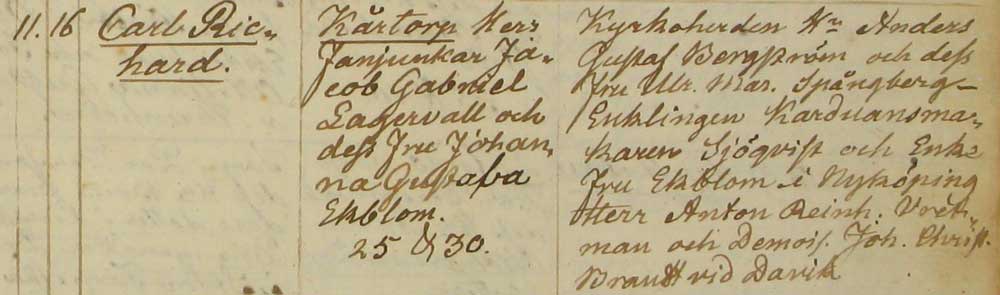 11. 16 Carl Ric-
hard.
Kårtorp Herr
Fanjunkar Ja-
cob Gabriel
Lagervall och
dess Fru Johan-
na Gustafva
Ekblom.
25 & 30.
Kyrkoherden Hr Anders
Gustaf Bergström och dess
Fru Ulr. Mar. Spångberg –
Enklingen Karduansma-
karen Sjöqvist och Enke
Fru Ekblom i Nyköping
Herr Anton Reinh. Vret-
man och Demois. Joh. Christ.
Brandt vid Davik